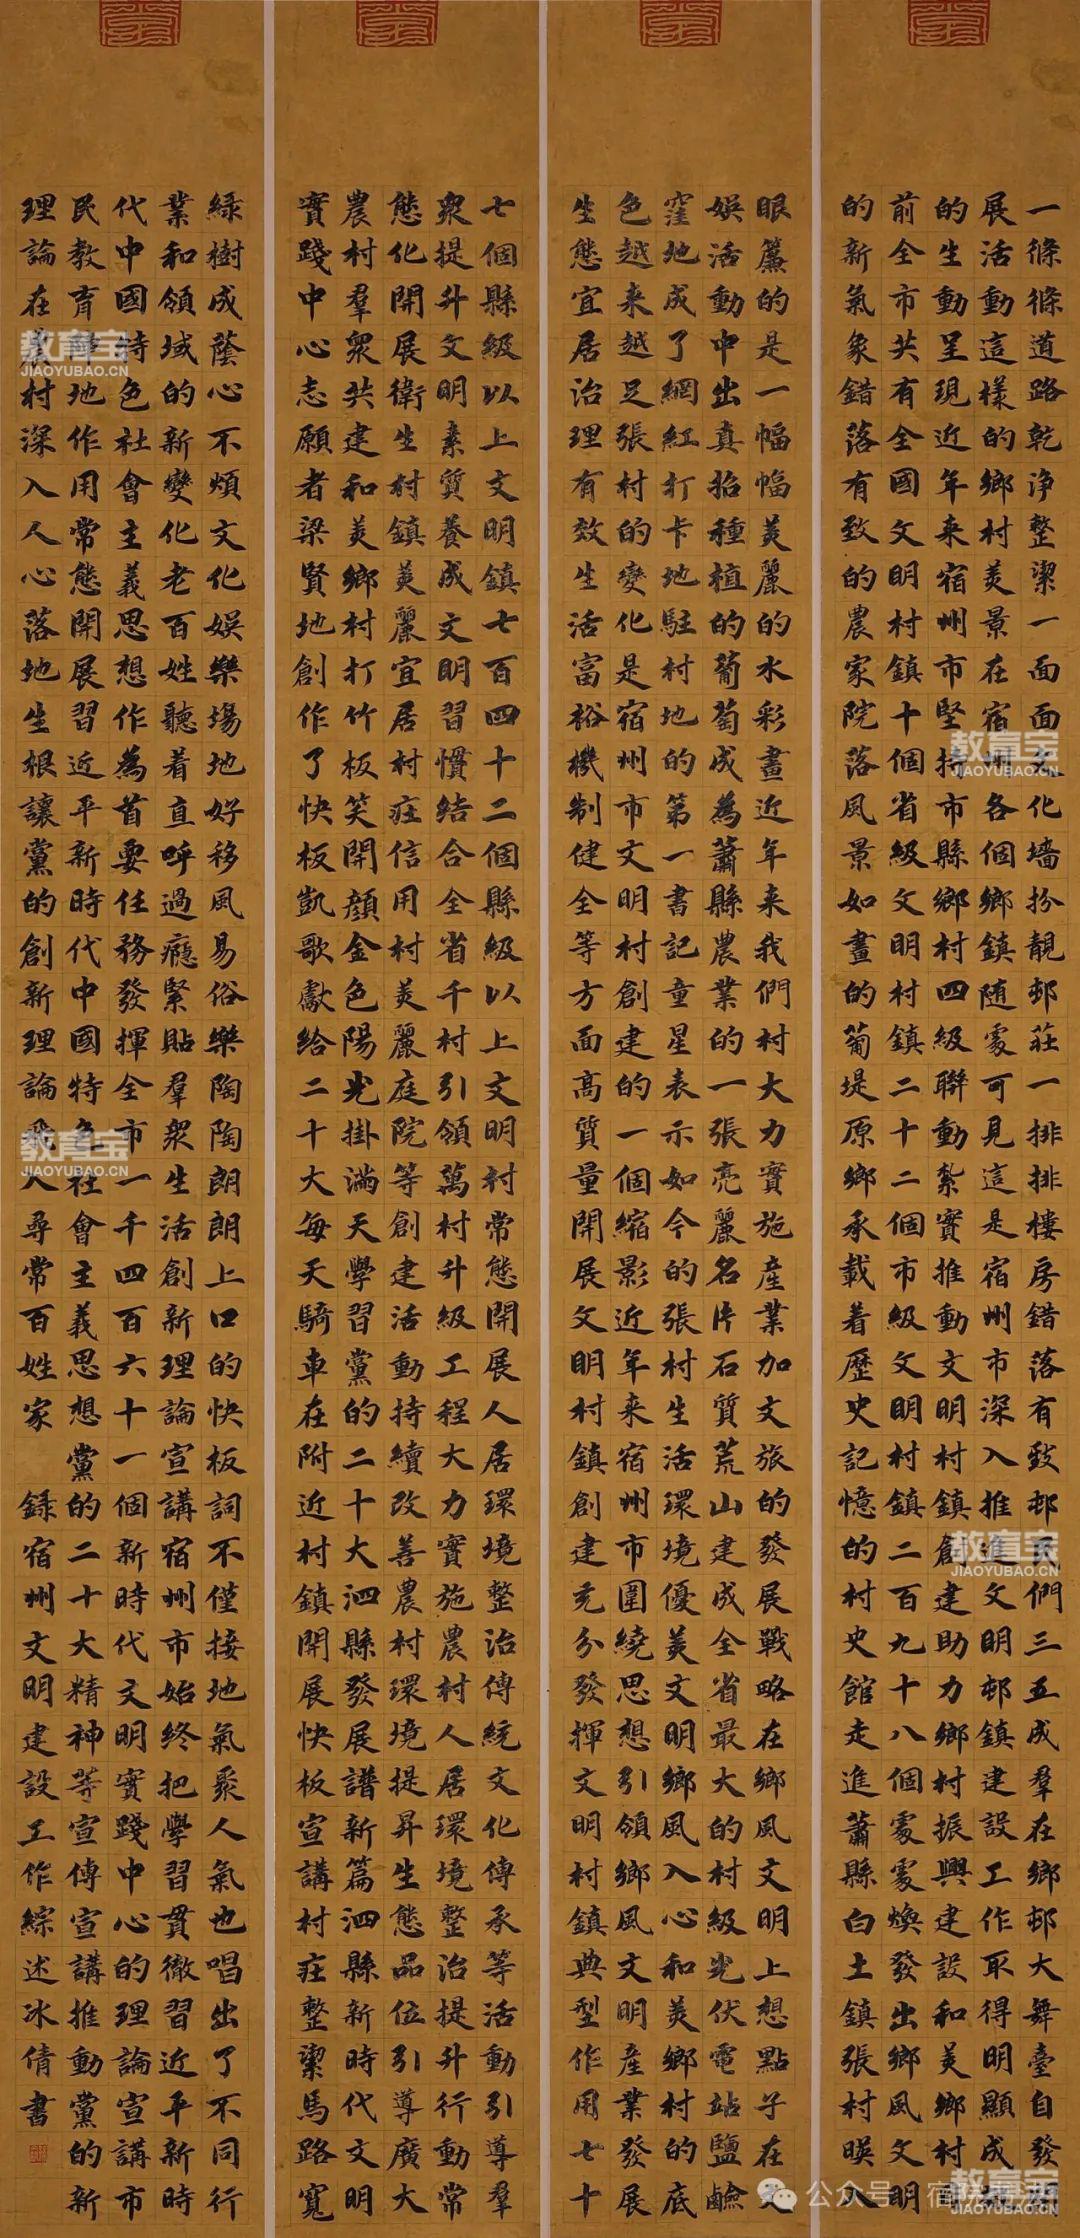 一條條道路乾淨整潔一面面文化墻扮靚邨莊一排排樓房錯落有致邨民們三五成羣在鄉邨大舞臺自發開
展活動這樣的鄉村美景在宿州各個鄉鎮随處可見這是宿州市深入推進文明邨鎮建設工作取得明顯成效
的生動呈現近年来宿州市堅持市縣鄉村四級聯動紮實推動文明村鎮創建助力鄉村振興建設和美鄉村目
前全市共有全國文明村鎮十個省級文明村鎮二十二個市級文明村鎮二百九十八個處處煥發出鄉風文明
的新氣象錯落有致的農家院落風景如畫的葡堤原鄉承載着歷史記憶的村史館走進蕭縣白土鎮張村映入
眼簾的是一幅幅美麗的水彩畫近年来我們村大力實施産業加文旅的發展戰略在鄉風文明上想點子在文
娛活動中出真招種植的葡萄成為蕭縣農業的一張亮麗名片石質荒山建成全省最大的村級光伏電站鹽鹼
窪地成了網紅打卡地駐村地的第一書記童星表示如今的張村生活環境優美文明鄉風入心和美鄉村的底
色越来越足張村的變化是宿州市文明村創建的一個縮影近年来宿州市圍繞思想引領鄉風文明産業發展
生態宜居治理有效生活富裕機制健全等方面高質量開展文明村鎮創建充分發揮文明村鎮典型作用七十
七個縣級以上文明鎮七百四十二個縣級以上文明村常態開展人居環境整治傳統文化傳承等活動引導羣
衆提升文明素質養成文明習慣結合全省千村引領萬村升級工程大力實施農村人居環境整治提升行動常
態化開展衛生村鎮美麗宜居村莊信用村美麗庭院等創建活動持續改善農村環境提昇生態品位引導廣大
農村羣衆共建和美鄉村打竹板笑開顔金色陽光掛滿天學習黨的二十大泗縣發展譜新篇泗縣新時代文明
實踐中心志願者梁賢地創作了快板凱歌獻給二十大每天騎車在附近村鎮開展快板宣講村莊整潔馬路寬
綠樹成蔭心不煩文化娛樂場地好移風易俗樂陶陶朗朗上口的快板詞不僅接地氣聚人氣也唱出了不同行
業和領域的新變化老百姓聽着直呼過癮緊貼羣衆生活創新理論宣講宿州市始終把學習貫徹習近平新時
代中國特色社會主義思想作為首要任務發揮全市一千四百六十一個新時代文明實踐中心的理論宣講市
民教育陣地作用常態開展習近平新時代中國特色社會主義思想黨的二十大精神等宣傳宣講推動黨的新
理論在農村深入人心落地生根讓黨的創新理論飛入尋常百姓家 錄宿州文明建設工作綜述冰倩書
教育宝
JIAOYUBAO.CN
教育宝
JIAOYUBAO.CN
教育宝
JIAOYUBAO.CN
教育宝
JIAOYUBAO.CN
教育宝
JIAOYUBAO.CN
公众号